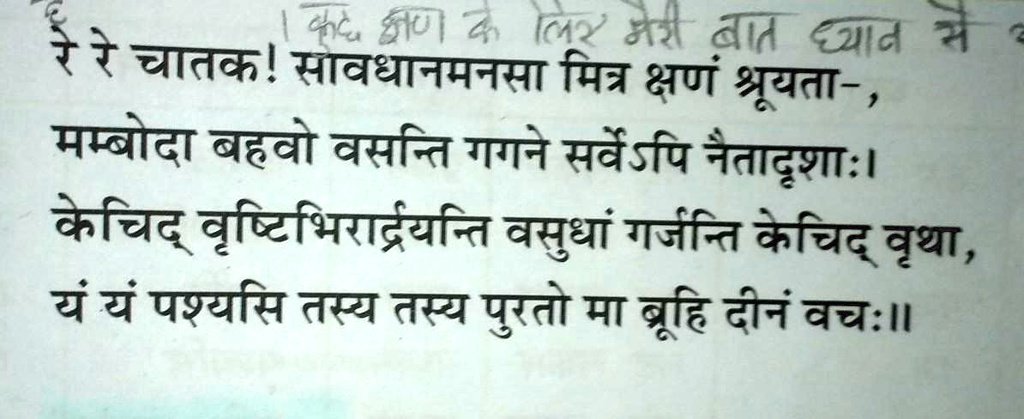 । कुछ क्षण के लिए मेरी बात ध्यान से
रे रे चातक! सावधानमनसा मित्र क्षणं श्रूयता-,
मम्बोदा बहवो वसन्ति गगने सर्वेऽपि नैतादृशाः।
केचिद् वृष्टिभिरार्द्रयन्ति वसुधां गर्जन्ति केचिद् वृथा,
यं यं पश्यसि तस्य तस्य पुरतो मा ब्रूहि दीनं वचः॥